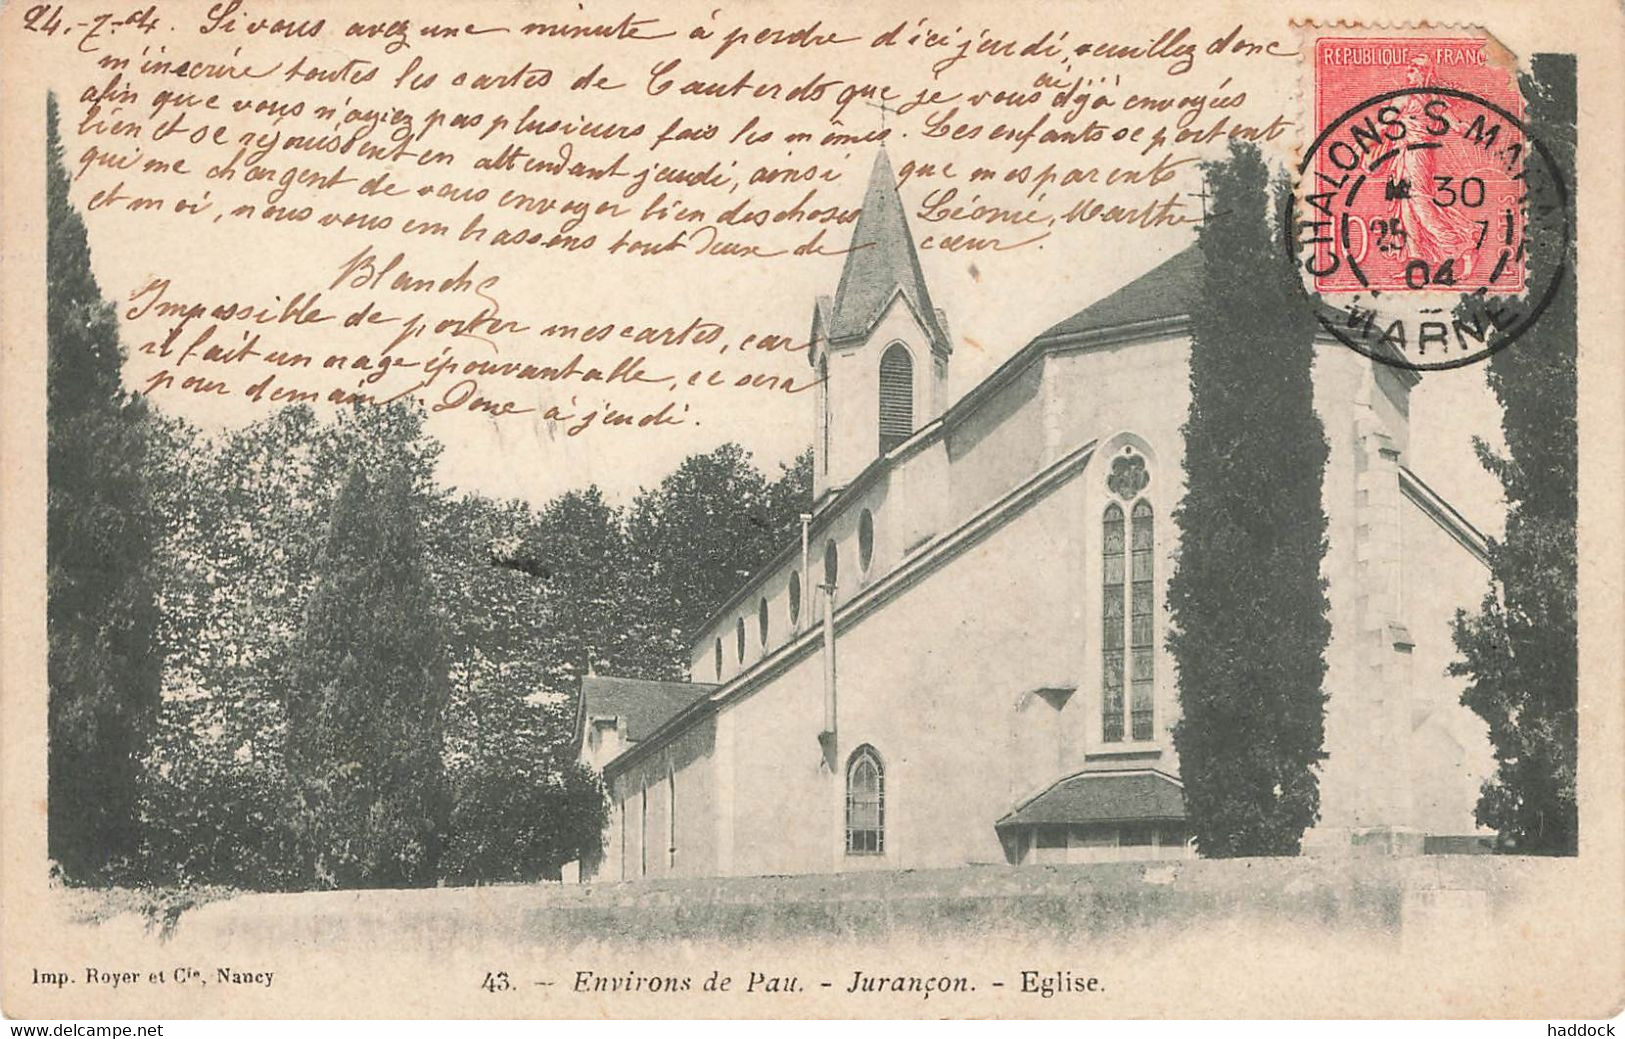 24-7-04. Si vous avez une minute à perdre d'ici jeudi, veuillez donc
m'inscrire toutes les cartes de Cauterets que je vous ai déjà envoyées
afin que vous n'ayiez pas plusieurs fois les mêmes. Les enfants se portent
bien et se rejouissent en attendant jeudi, ainsi que mes parents
qui me chargent de vous envoyer bien des choses. Léonie, Marthe
et moi, nous vous embrassons tout deux de cœur.
Blanche
Impossible de porter mes cartes, car
il fait un orage épouvantable, ce sera
pour demain. Donc à jeudi.
REPUBLIQUE FRANC
10
CHALONS S MARNE
30
25 7
04
MARNE
Imp. Royer et Cie, Nancy
43. - Environs de Pau. - Jurançon. - Eglise.
haddock